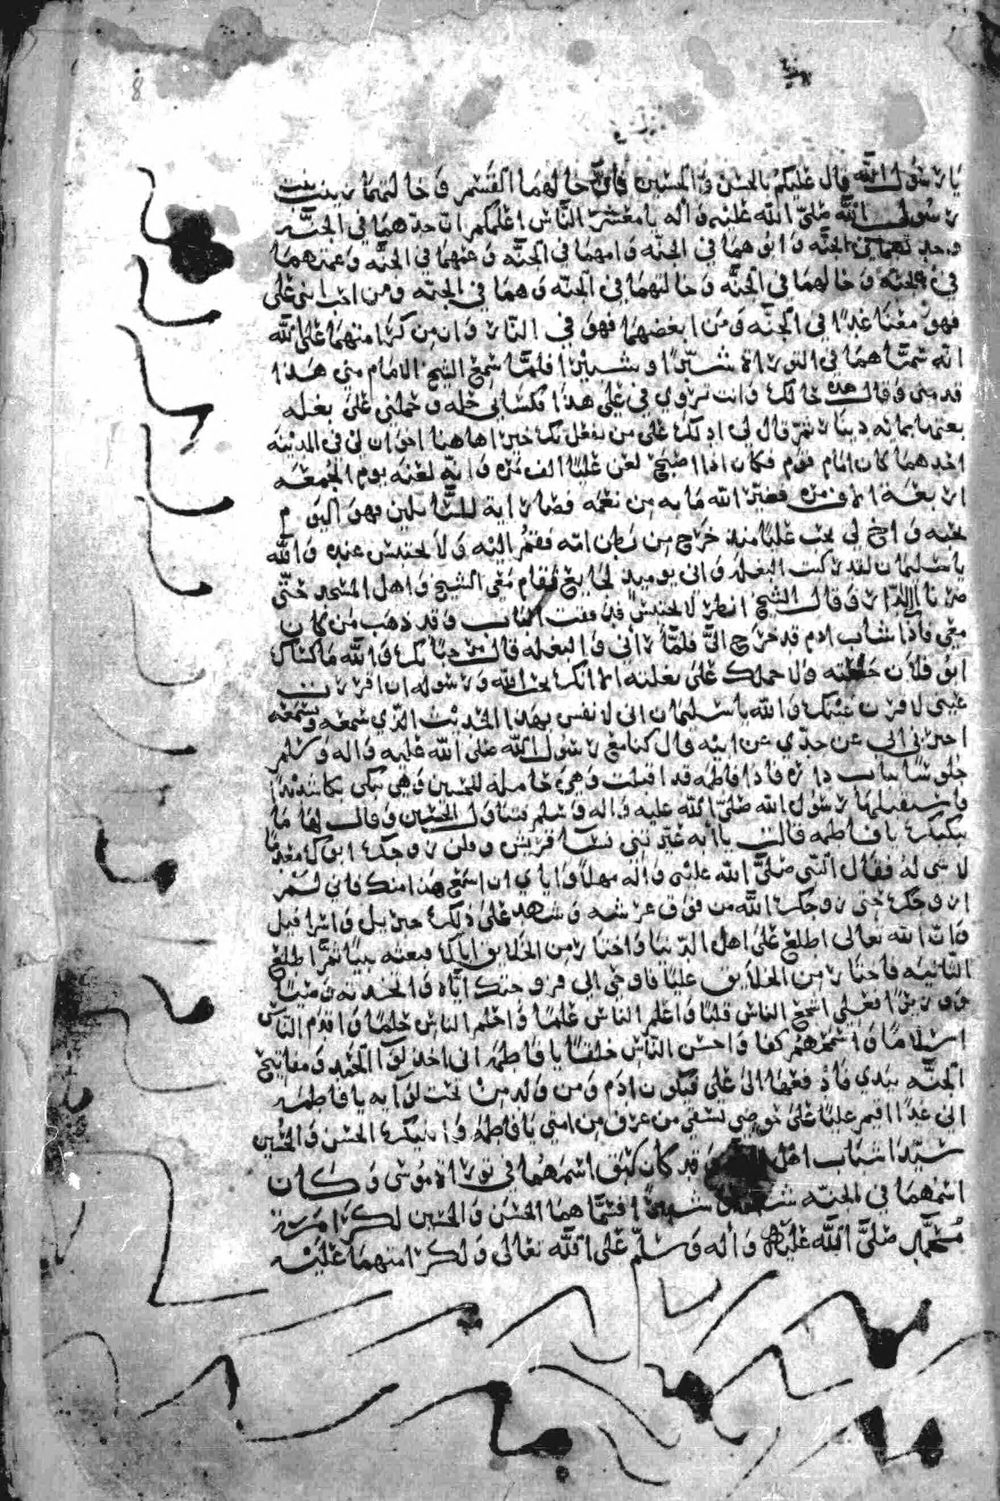 يا رسول الله قال عليكم بالحسن والحسين فان خالهما القسم وخالتهما زينب بنت
رسول الله صلى الله عليه واله يا معشر الناس اعلمكم ان جدهما في الجنة
وجدتهما في الجنة وابوهما في الجنة وامهما في الجنة وعمهما في الجنة وعمتهما
في الجنة وخالهما في الجنة وخالتهما في الجنة وهما في الجنة ومن احب ابني علي
فهو معنا غدا في الجنة ومن ابغضهما فهو في النار وان من كرامتهما على الله
انه سماهما في التوراة شبرا وشبيرا فلما سمع الشيخ الامام مني هذا
قدمني وقال هذه حالك وانت تروي في علي هذا فكساني حلة وحملني على بغلة
بعتها بمائة دينار ثم قال لي ادلك على من يفعل بك خيرا هاهنا اخوان لي في المدينة
احدهما كان امام قوم فكان اذا اصبح لعن عليا الف مرة وانه لعنه يوم الجمعة
اربعة الاف مرة فغير الله ما به من نعمة فصار اية للسائلين فهو اليوم
يحبه واخ لي يحب عليا منذ خرج من بطن امه فقم اليه ولا تحتبس عنده والله
يا سليمان لقد ركبت البغلة واني يوميذ لجايع فقام معي الشيخ واهل المسجد حتى
صرنا الى الدار وقال الشيخ انظر لا تحتبس فدققت الباب وقد ذهب من كان
معي فاذا شاب ادم قد خرج الي فلما راني والبغلة قال مرحبا بك والله ما كساك
ابو فلان حلته ولا حملك على بغلته الا انك تحب الله ورسوله لئن اقررت
عيني لاقرن عينك والله يا سليمان اني لانفس بهذا الحديث الذي سمعه وتسمعه
اخبرني ابي عن جدي عن ابيه قال كنا مع رسول الله صلى الله عليه واله وسلم
جلوسا بباب داره فاذا فاطمة قد اقبلت وهي حاملة للحسين وهي تبكي بكا شديدا
فاستقبلها رسول الله صلى الله عليه واله وسلم فتناول الحسين وقال لها ما
يبكيك يا فاطمة قالت يا ابه عيرتني نسا قريش وقلن زوجك ابوك معدما
لا شي له فقال النبي صلى الله عليه واله مهلا واياي ان اسمع هذا منك فاني لم
ازوجك حتى زوجك الله من فوق عرشه وشهد على ذلك جبريل واسرافيل
وان الله تعالى اطلع على اهل الدنيا فاختار من الخلايق اباك فبعثه نبيا ثم اطلع
الثانية فاختار من الخلايق عليا فاوحى الي فزوجتك اياه واتخذته وصيا
ووزيرا فعلي اشجع الناس قلبا واعلم الناس علما واحلم الناس حلما واقدم الناس
اسلاما واسمحهم كفا واحسن الناس خلقا يا فاطمة اني اخذ لوا الحمد ومفاتيح
الجنة بيدي فادفعها الى علي فيكون ادم ومن ولد من تحت لوايه يا فاطمة
اني غدا اقيم عليا على حوضي يسقي من عرف من امتي يا فاطمة وابنيك الحسن والحسين
سيدا شباب اهل وقد كان سبق اسمهما في توراة موسى وكان
اسمهما في الجنة شبيرا فسماهما الحسن والحسين لكرامة
محمد صلى الله عليه واله وسلم على الله تعالى ولكرامتهما عليه